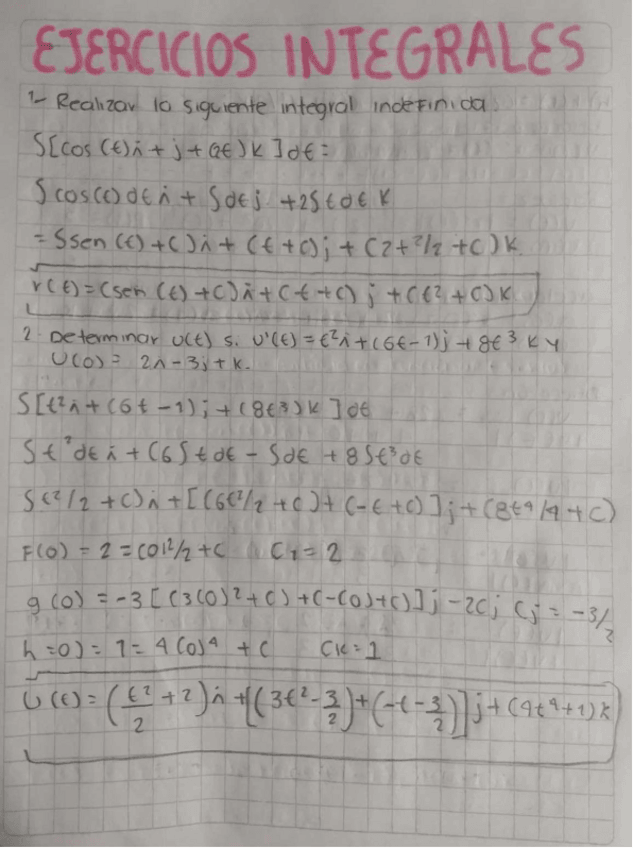 EJERCICIOS INTEGRALES
1- Realizar la siguiente integral indefinida.
∫[cos (t)i + j + (2t)k]dt =
∫cos(t)dt i + ∫dt j + 2∫t dt k
= ∫sen (t) + C)i + (t + c)j + (2 + ²/2 + C)k
r(t) = (sen (t) + c)i + (t + c)j + (t² + c)k
2. Determinar u(t) s. u'(t) = t²i + (6t - 1)j + 8t³ k y
U(0) = 2i - 3j + k.
∫[t²i + (6t - 1)j + (8t³)k]dt
∫t²dt i + (6∫t dt - ∫dt + 8∫t³dt
∫(²/2 + c)i + [(6t²/2 + c) + (-t + c)]j + (8t⁴/4 + C)
F(0) = 2 = (0)²/2 + C C1 = 2
g(0) = -3 [(3(0)² + c) + (-(0) + c)]j - 2Cj Cj = -3/2
h = 0) = 1 = 4(0)⁴ + C Ck = 1
U(t) = (t²/2 + 2)i + [(3t² - 3/2) + (-t - 3/2)]j + (4t⁴ + 1)k